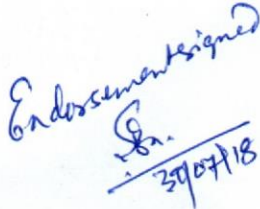 Endorsement signed
Sd/.
30/07/18